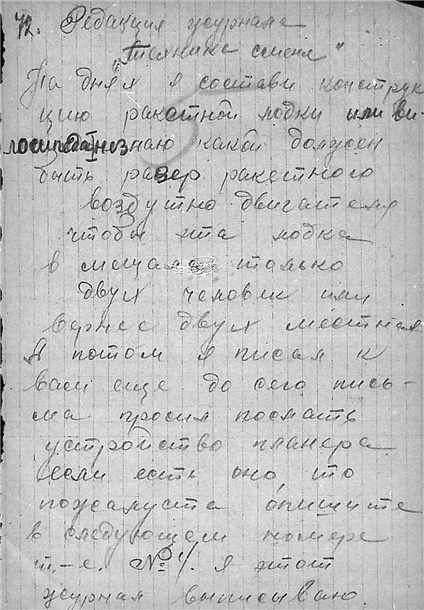 42. Редакция журнала
"Техника смене"
На днях я состави конструк
цию ракетной лодки или ви-
лосипеда I незнаю какой должен
быть развер ракетного
воздушно двигателя
чтобы эта лодка
в мещала только
двух человек или
вернее двух местная
А потом я писал к
вам еще до сего пись-
ма просил послать
устройство планера
если есть оно, то
пожалуста опишите
в следующем номере
т.-е. №4. я этот
журнал выписываю.